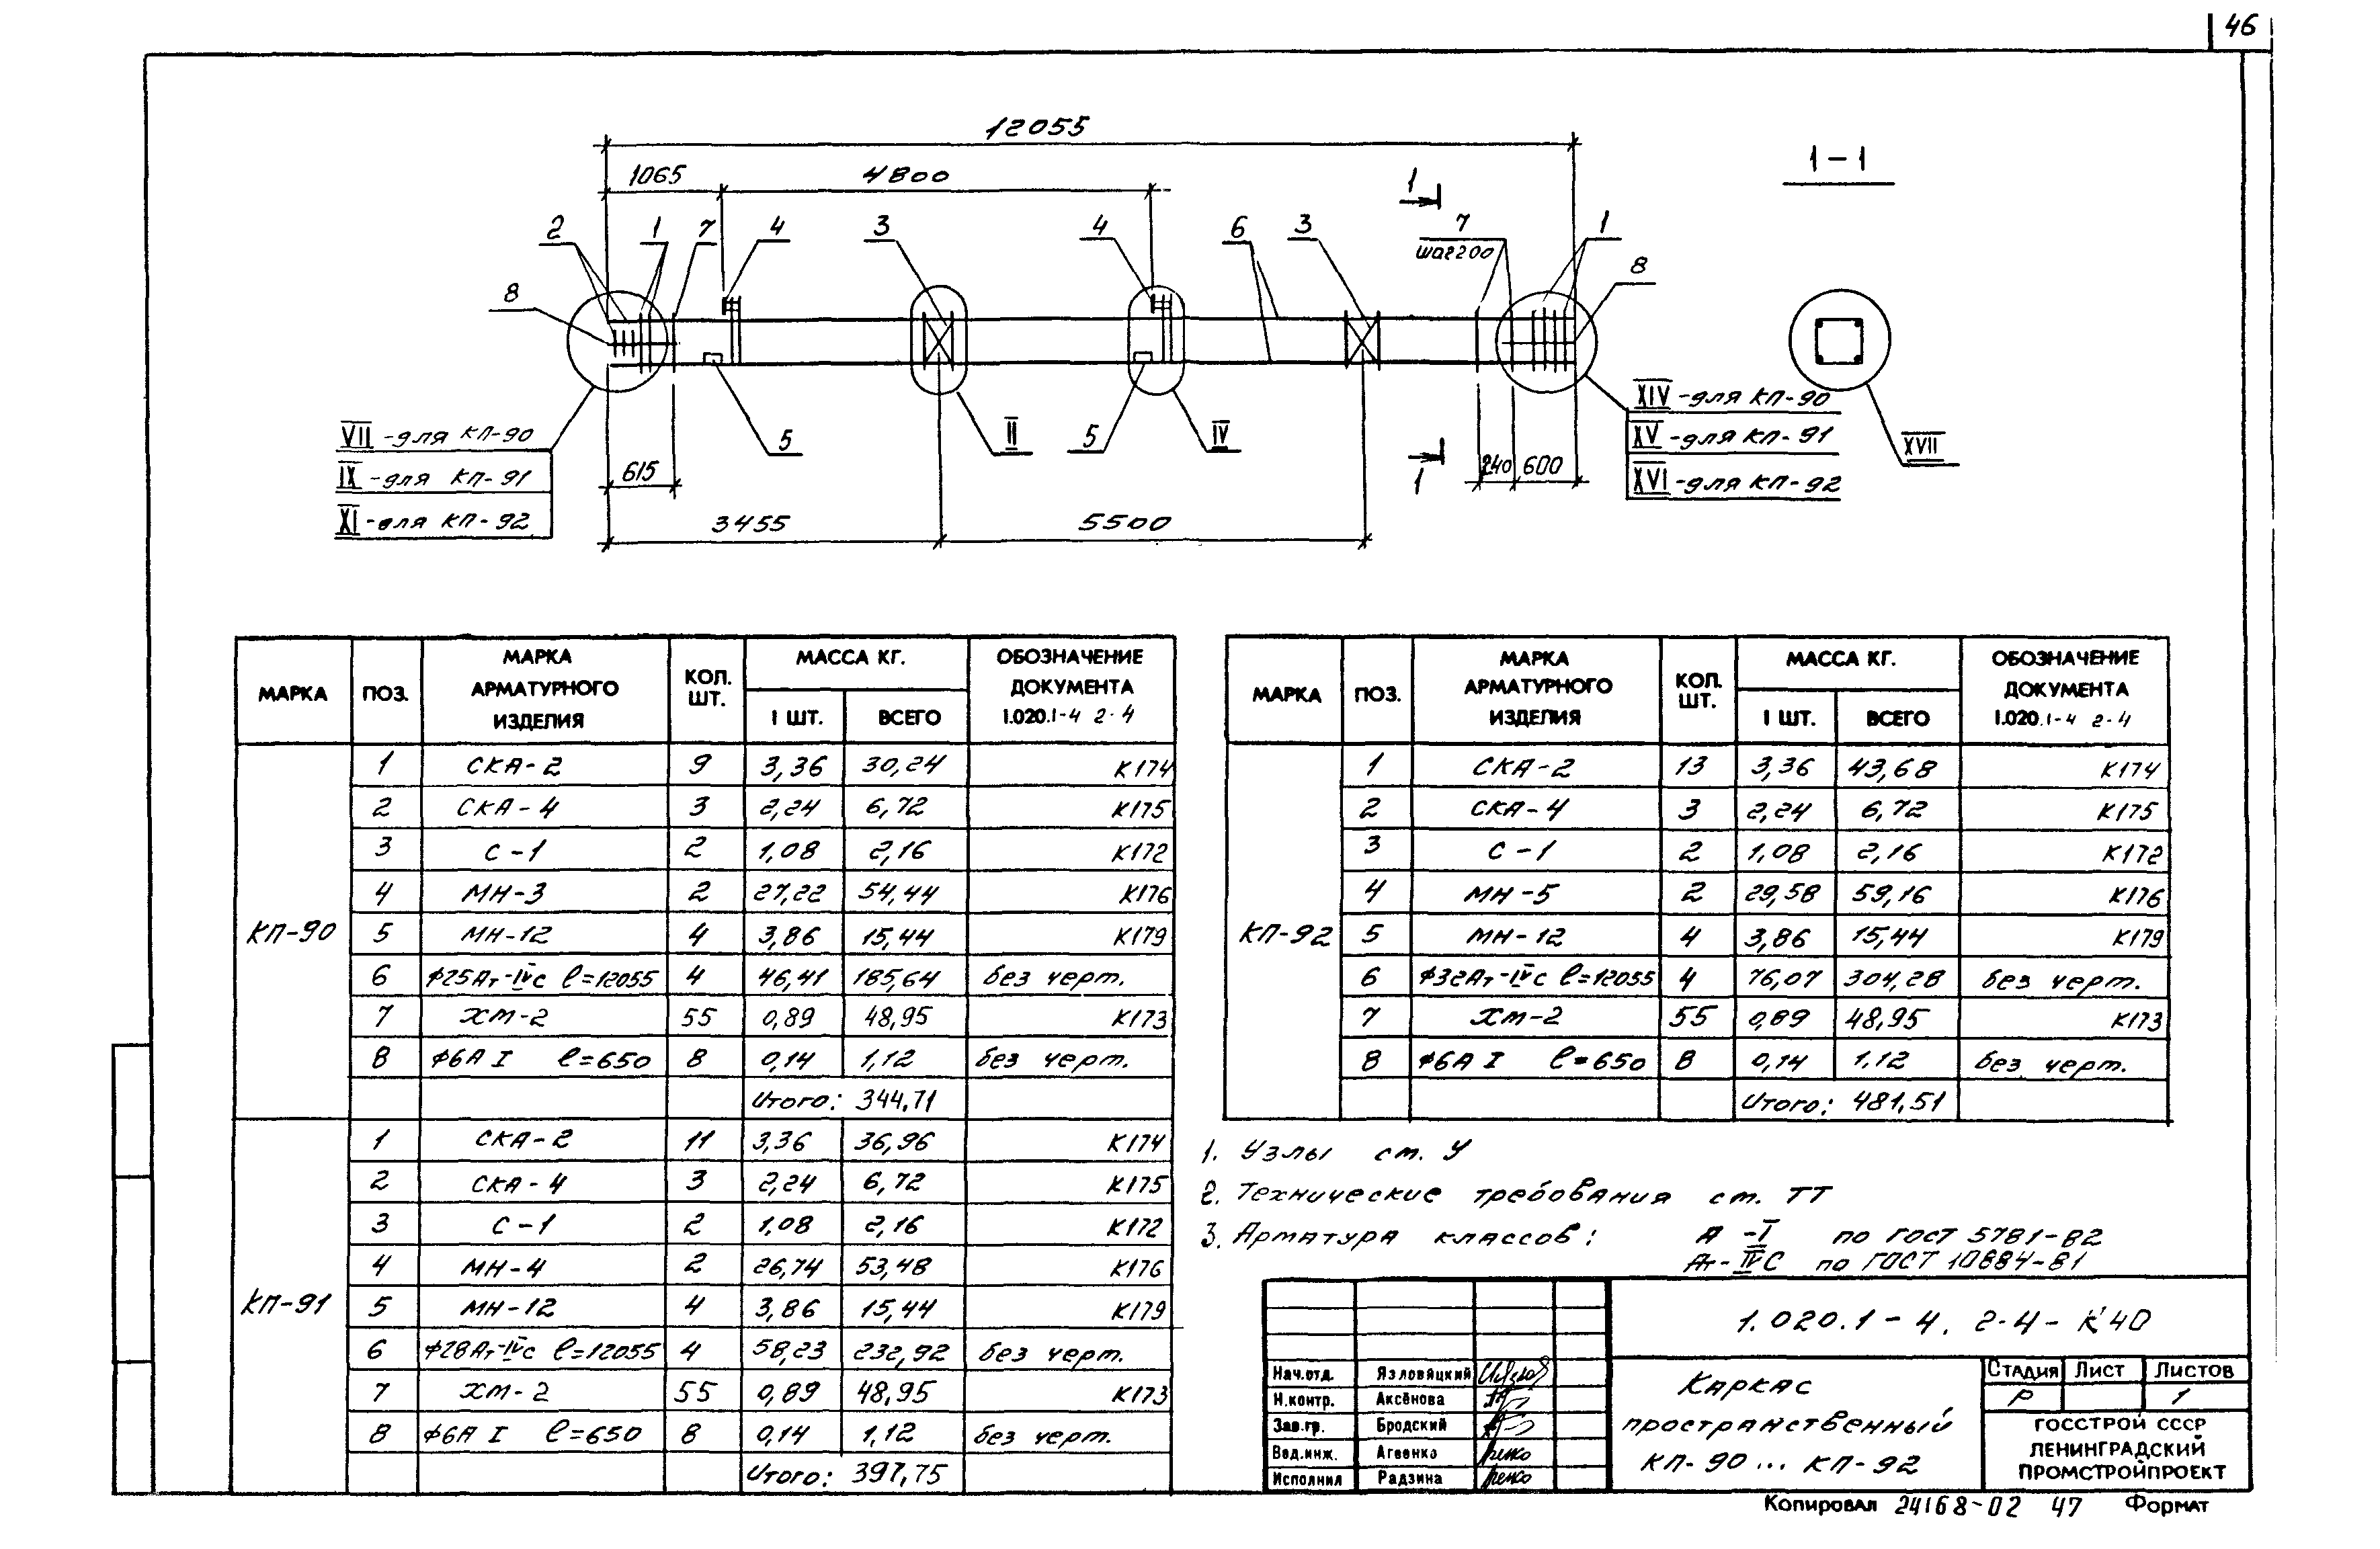 46
12055
1065 4800
1 1-1
2 1 7 4 3 4 6 3 7 1
шаг 200
8 8
VII -для КП-90 5 5 II IV XIV -для КП-90
IX -для КП-91 XV -для КП-91 XVII
XI -для КП-92 XVI -для КП-92
615 240 600 1
3455 5500
МАРКА ПОЗ. МАРКА АРМАТУРНОГО ИЗДЕЛИЯ КОЛ. ШТ. МАССА КГ. 1 ШТ. ВСЕГО ОБОЗНАЧЕНИЕ ДОКУМЕНТА 1.020.1-4 2-4
КП-90
1 СКА-2 9 3,36 30,24 К174
2 СКА-4 3 2,24 6,72 К175
3 С-1 2 1,08 2,16 К172
4 МН-3 2 27,22 54,44 К176
5 МН-12 4 3,86 15,44 К179
6 Ф25Ат-IVс ℓ=12055 4 46,41 185,64 без черт.
7 ХМ-2 55 0,89 48,95 К173
8 Ф6А I ℓ=650 8 0,14 1,12 без черт.
Итого: 344,71
КП-91
1 СКА-2 11 3,36 36,96 К174
2 СКА-4 3 2,24 6,72 К175
3 С-1 2 1,08 2,16 К172
4 МН-4 2 26,74 53,48 К176
5 МН-12 4 3,86 15,44 К179
6 Ф28Ат-IVс ℓ=12055 4 58,23 232,92 без черт.
7 ХМ-2 55 0,89 48,95 К173
8 Ф6А I ℓ=650 8 0,14 1,12 без черт.
Итого: 397,75
МАРКА ПОЗ. МАРКА АРМАТУРНОГО ИЗДЕЛИЯ КОЛ. ШТ. МАССА КГ. 1 ШТ. ВСЕГО ОБОЗНАЧЕНИЕ ДОКУМЕНТА 1.020.1-4 2-4
КП-92
1 СКА-2 13 3,36 43,68 К174
2 СКА-4 3 2,24 6,72 К175
3 С-1 2 1,08 2,16 К172
4 МН-5 2 29,58 59,16 К176
5 МН-12 4 3,86 15,44 К179
6 Ф32Ат-IVс ℓ=12055 4 76,07 304,28 без черт.
7 ХМ-2 55 0,89 48,95 К173
8 Ф6А I ℓ=650 8 0,14 1,12 без черт.
Итого: 481,51
1. Узлы см. У
2. Технические требования см. ТТ
3. Арматура классов: А -I по ГОСТ 5781-82
Ат-IVС по ГОСТ 10884-81
1.020.1-4. 2-4-К40
Нач.отд. Язловицкий
Н.контр. Аксёнова
Зав.гр. Бродский
Вед.инж. Агеенко
Исполнил Радзина
Каркас
пространственный
КП-90...КП-92
Стадия Лист Листов
Р 1
ГОССТРОЙ СССР
ЛЕНИНГРАДСКИЙ
ПРОМСТРОЙПРОЕКТ
Копировал 24168-02 47 Формат